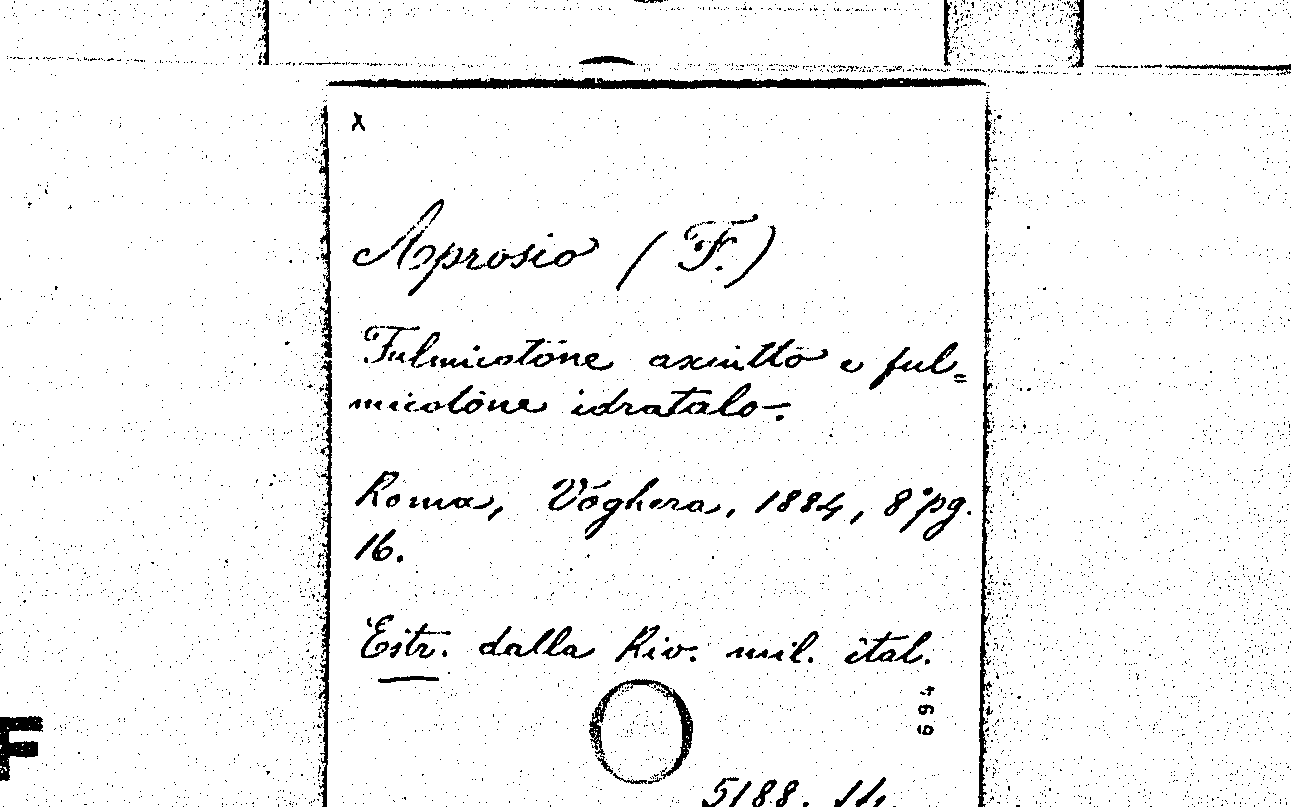 x
Aprosio (F.)
Fulmicotone asciutto e ful=
micotone idratato.
Roma, Voghera, 1884, 8° pg.
16.
Estr. dalla Riv. mil. ital.
694
F
5188.